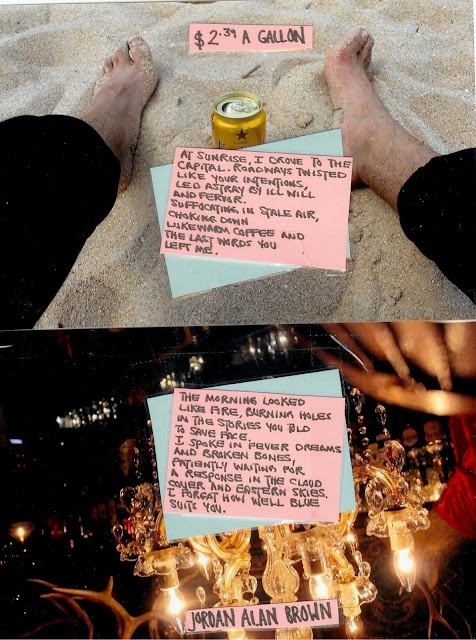 $2.39 A GALLON
AT SUNRISE, I DROVE TO THE
CAPITAL. ROADWAYS TWISTED
LIKE YOUR INTENTIONS,
LED ASTRAY BY ILL WILL
AND FERVOR.
SUFFOCATING IN STALE AIR,
CHOKING DOWN
LUKEWARM COFFEE AND
THE LAST WORDS YOU
LEFT ME.
THE MORNING LOOKED
LIKE FIRE, BURNING HOLES
IN THE STORIES YOU TOLD
TO SAVE FACE.
I SPOKE IN FEVER DREAMS
AND BROKEN BONES,
PATIENTLY WAITING FOR
A RESPONSE IN THE CLOUD
COVER AND EASTERN SKIES.
I FORGOT HOW WELL BLUE
SUITS YOU.
JORDAN ALAN BROWN